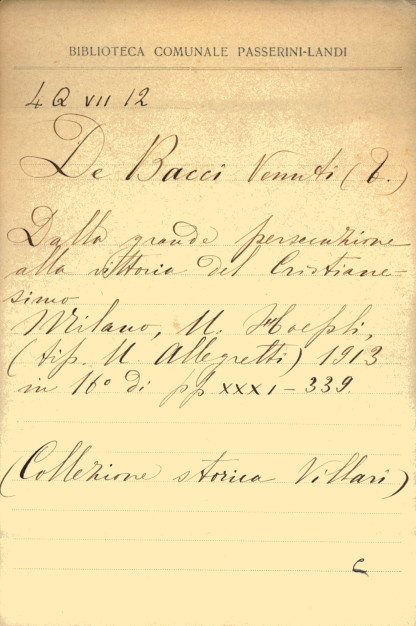 BIBLIOTECA COMUNALE PASSERINI-LANDI
4 Q VII 12
De Bacci Venuti (T.)
Dalla grande persecuzione
alla vittoria del Cristiane-
simo
Milano, U. Hoepli,
(tip. U. Allegretti) 1913
in 16° di pp XXXI-339.
(Collezione storica Villari)
C